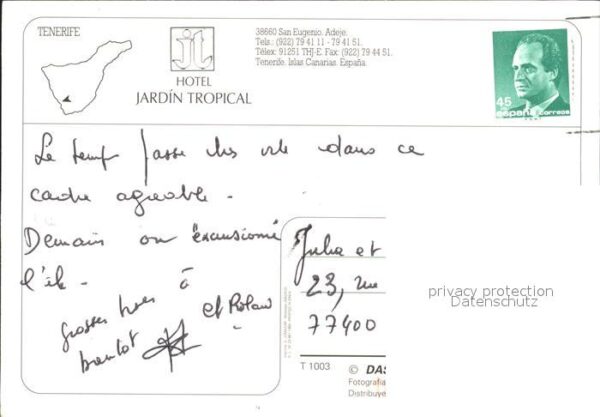 TENERIFE
jt
HOTEL
JARDÍN TROPICAL
38660 San Eugenio. Adeje.
Tels.: (922) 79 41 11 - 79 41 51.
Télex: 91251 THJ-E. Fax: (922) 79 44 51.
Tenerife. Islas Canarias. España.
45
españa correos
Le temps passe très vite dans ce
cadre agréable.
Demain on excursionne
l'île.
grosses bises à
et Roland
bientôt
Julia et
23, rue
77400
privacy protection
Datenschutz
T 1003
© DAS
Fotografía
Distribuye